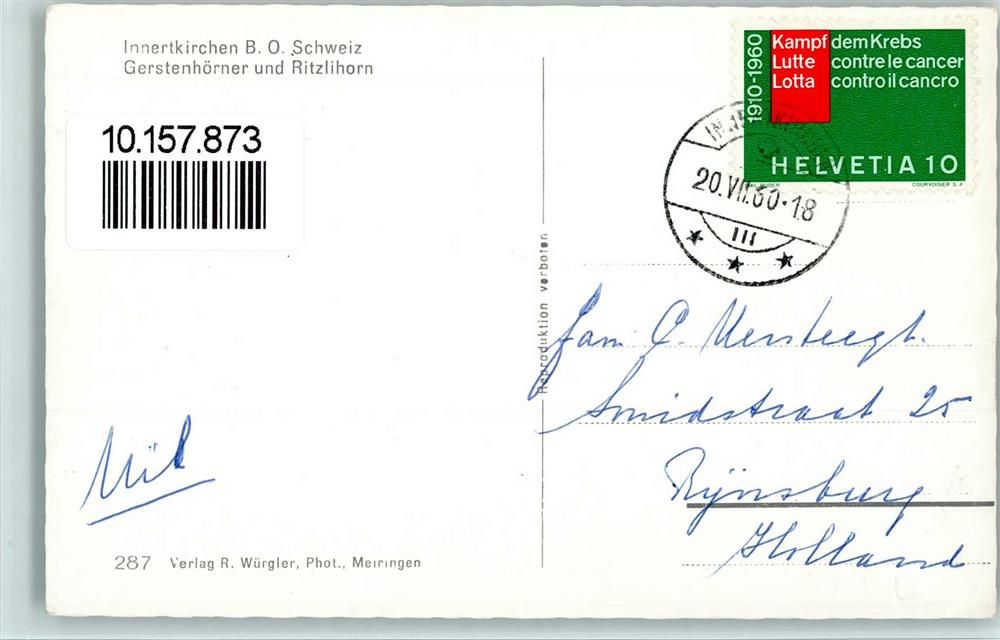 Innertkirchen B. O. Schweiz
Gerstenhörner und Ritzlihorn
10.157.873
1910-1960
Kampf dem Krebs
Lutte contre le cancer
Lotta contro il cancro
HELVETIA 10
COURVOISIER S. A.
20.VII.60-18
Reproduktion verboten
Fam. C. Versteegt.
Smidstraat 25
Rijnsburg
Holland
287 Verlag R. Würgler, Phot., Meiringen